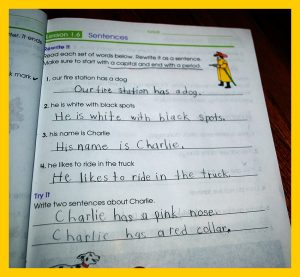 Lesson 1.6 Sentences
Rewrite It
Read each set of words below. Rewrite it as a sentence.
Make sure to start with a capital and end with a period.
k mark
1. our fire station has a dog
Our fire station has a dog.
2. he is white with black spots
He is white with black spots.
3. his name is Charlie
His name is Charlie.
4. he likes to ride in the truck
He likes to ride in the truck.
Try It
Write two sentences about Charlie.
Charlie has a pink nose.
Charlie has a red collar.